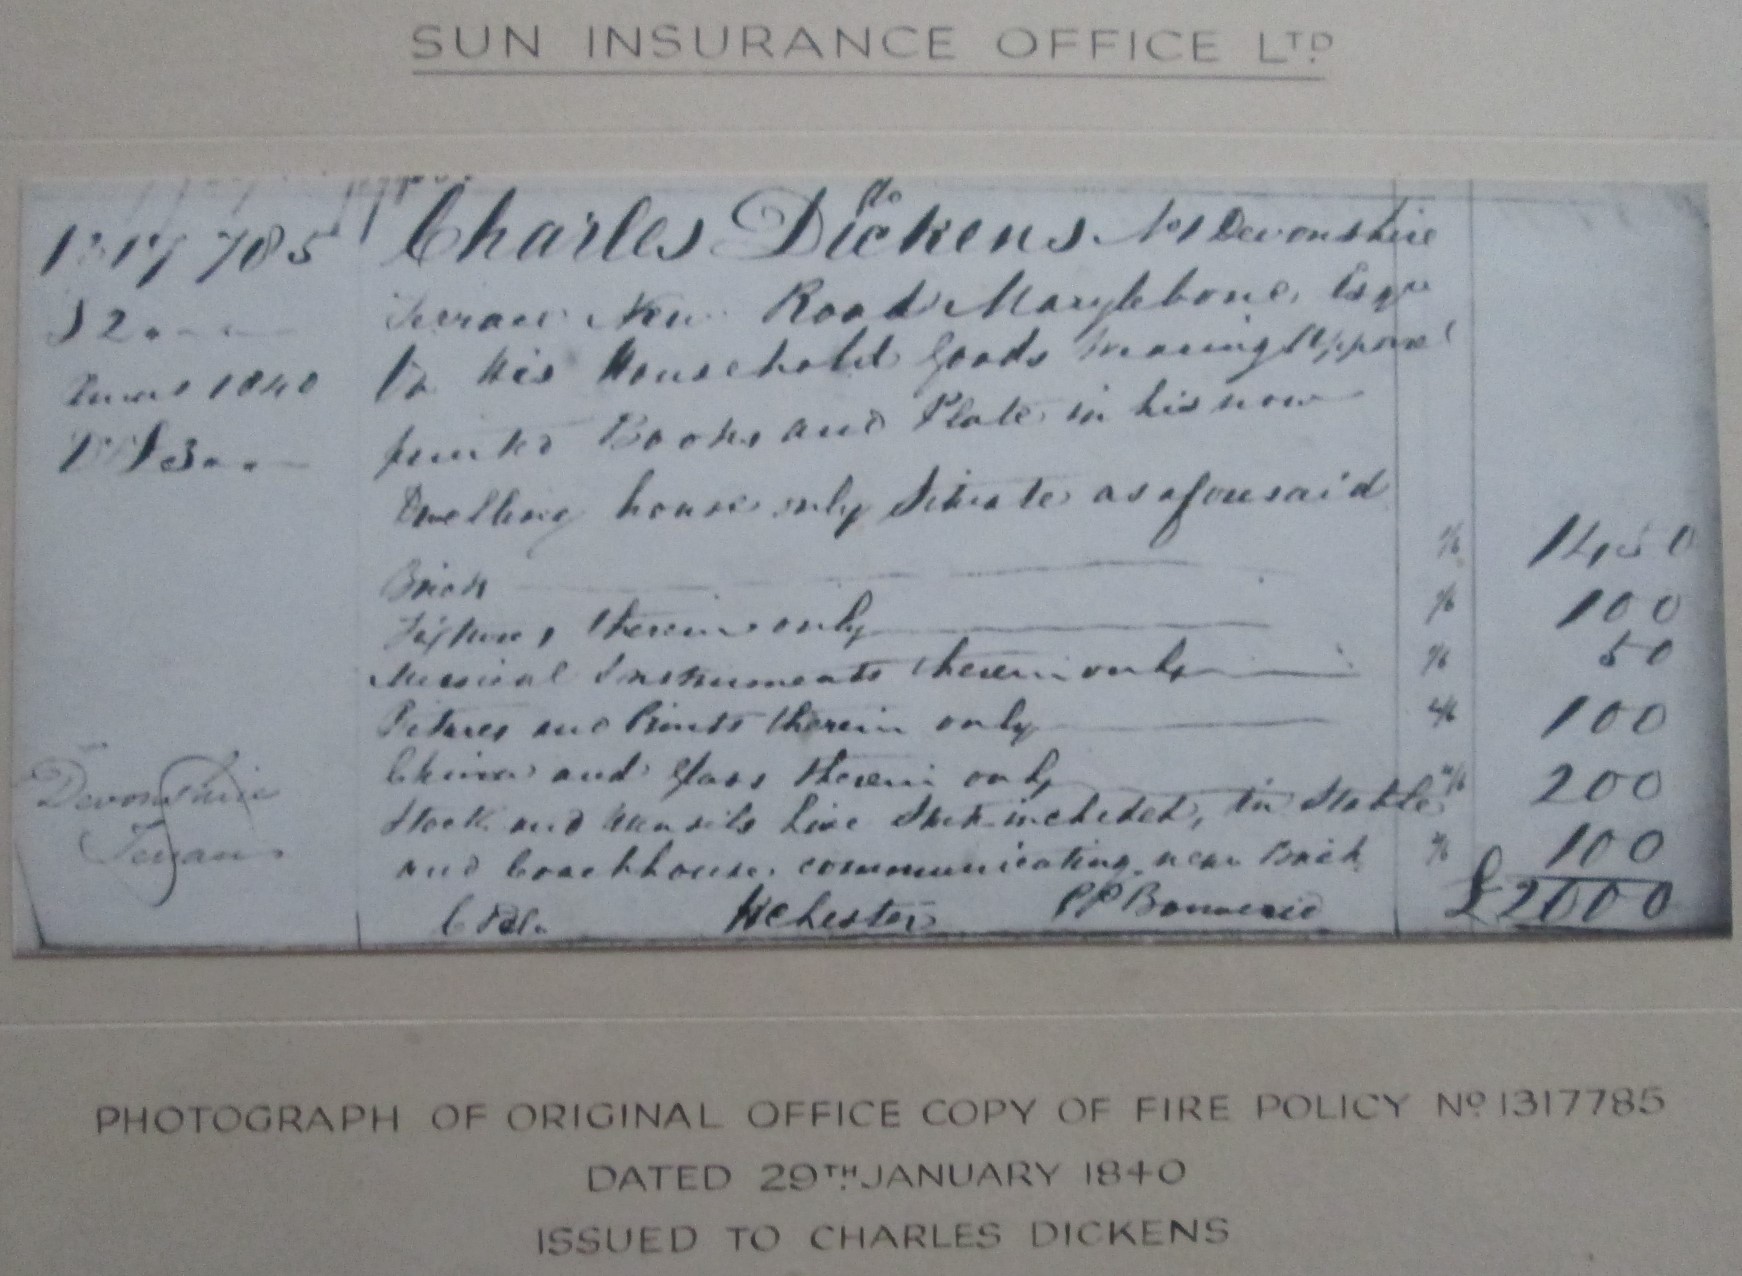 SUN INSURANCE OFFICE LTD
1317785
Charles Dickens No 1 Devonshire
Terrace New Road Marylebone, Esqre
On His Household Goods Wearing Apparel
printed Books and Plate in his now
Dwelling house only Situate as aforesaid
Brick 1450
Fixtures therein only 100
Musical Instruments therein only 50
Pictures and Prints therein only 100
China and Glass therein only 200
Stock and Utensils Live Stock included, in Stable
and Coachhouse communicating near Brick 100
£2000
1840
Devonshire
Terrace
C Pole HChester PPBouverie
PHOTOGRAPH OF ORIGINAL OFFICE COPY OF FIRE POLICY No 1317785
DATED 29TH JANUARY 1840
ISSUED TO CHARLES DICKENS